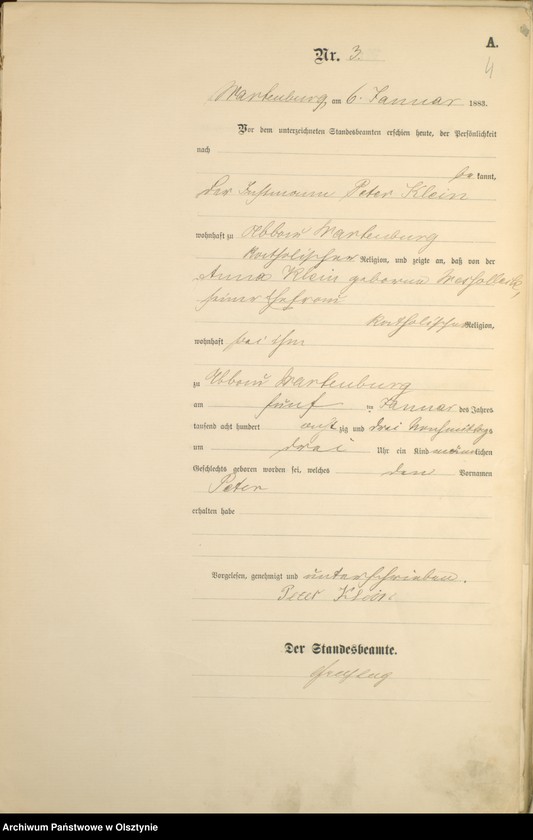 A.
Nr. 3.
4
Wartenburg am 6. Januar 1883.
Vor dem unterzeichneten Standesbeamten erschien heute, der Persönlichkeit
nach
be kannt,
der Instmann Peter Klein
wohnhaft zu Abbau Wartenburg
katholischer Religion, und zeigte an, daß von der
Anna Klein geborenen
seiner Ehefrau
katholischer Religion,
wohnhaft bei ihm
zu Abbau Wartenburg
am fünf ten Januar des Jahres
tausend acht hundert acht zig und drei Nachmittags
um drei Uhr ein Kind männlichen
Geschlechts geboren worden sei, welches den Vornamen
Peter
erhalten habe
Vorgelesen, genehmigt und unterschrieben.
Peter Klein
Der Standesbeamte.
Archiwum Państwowe w Olsztynie